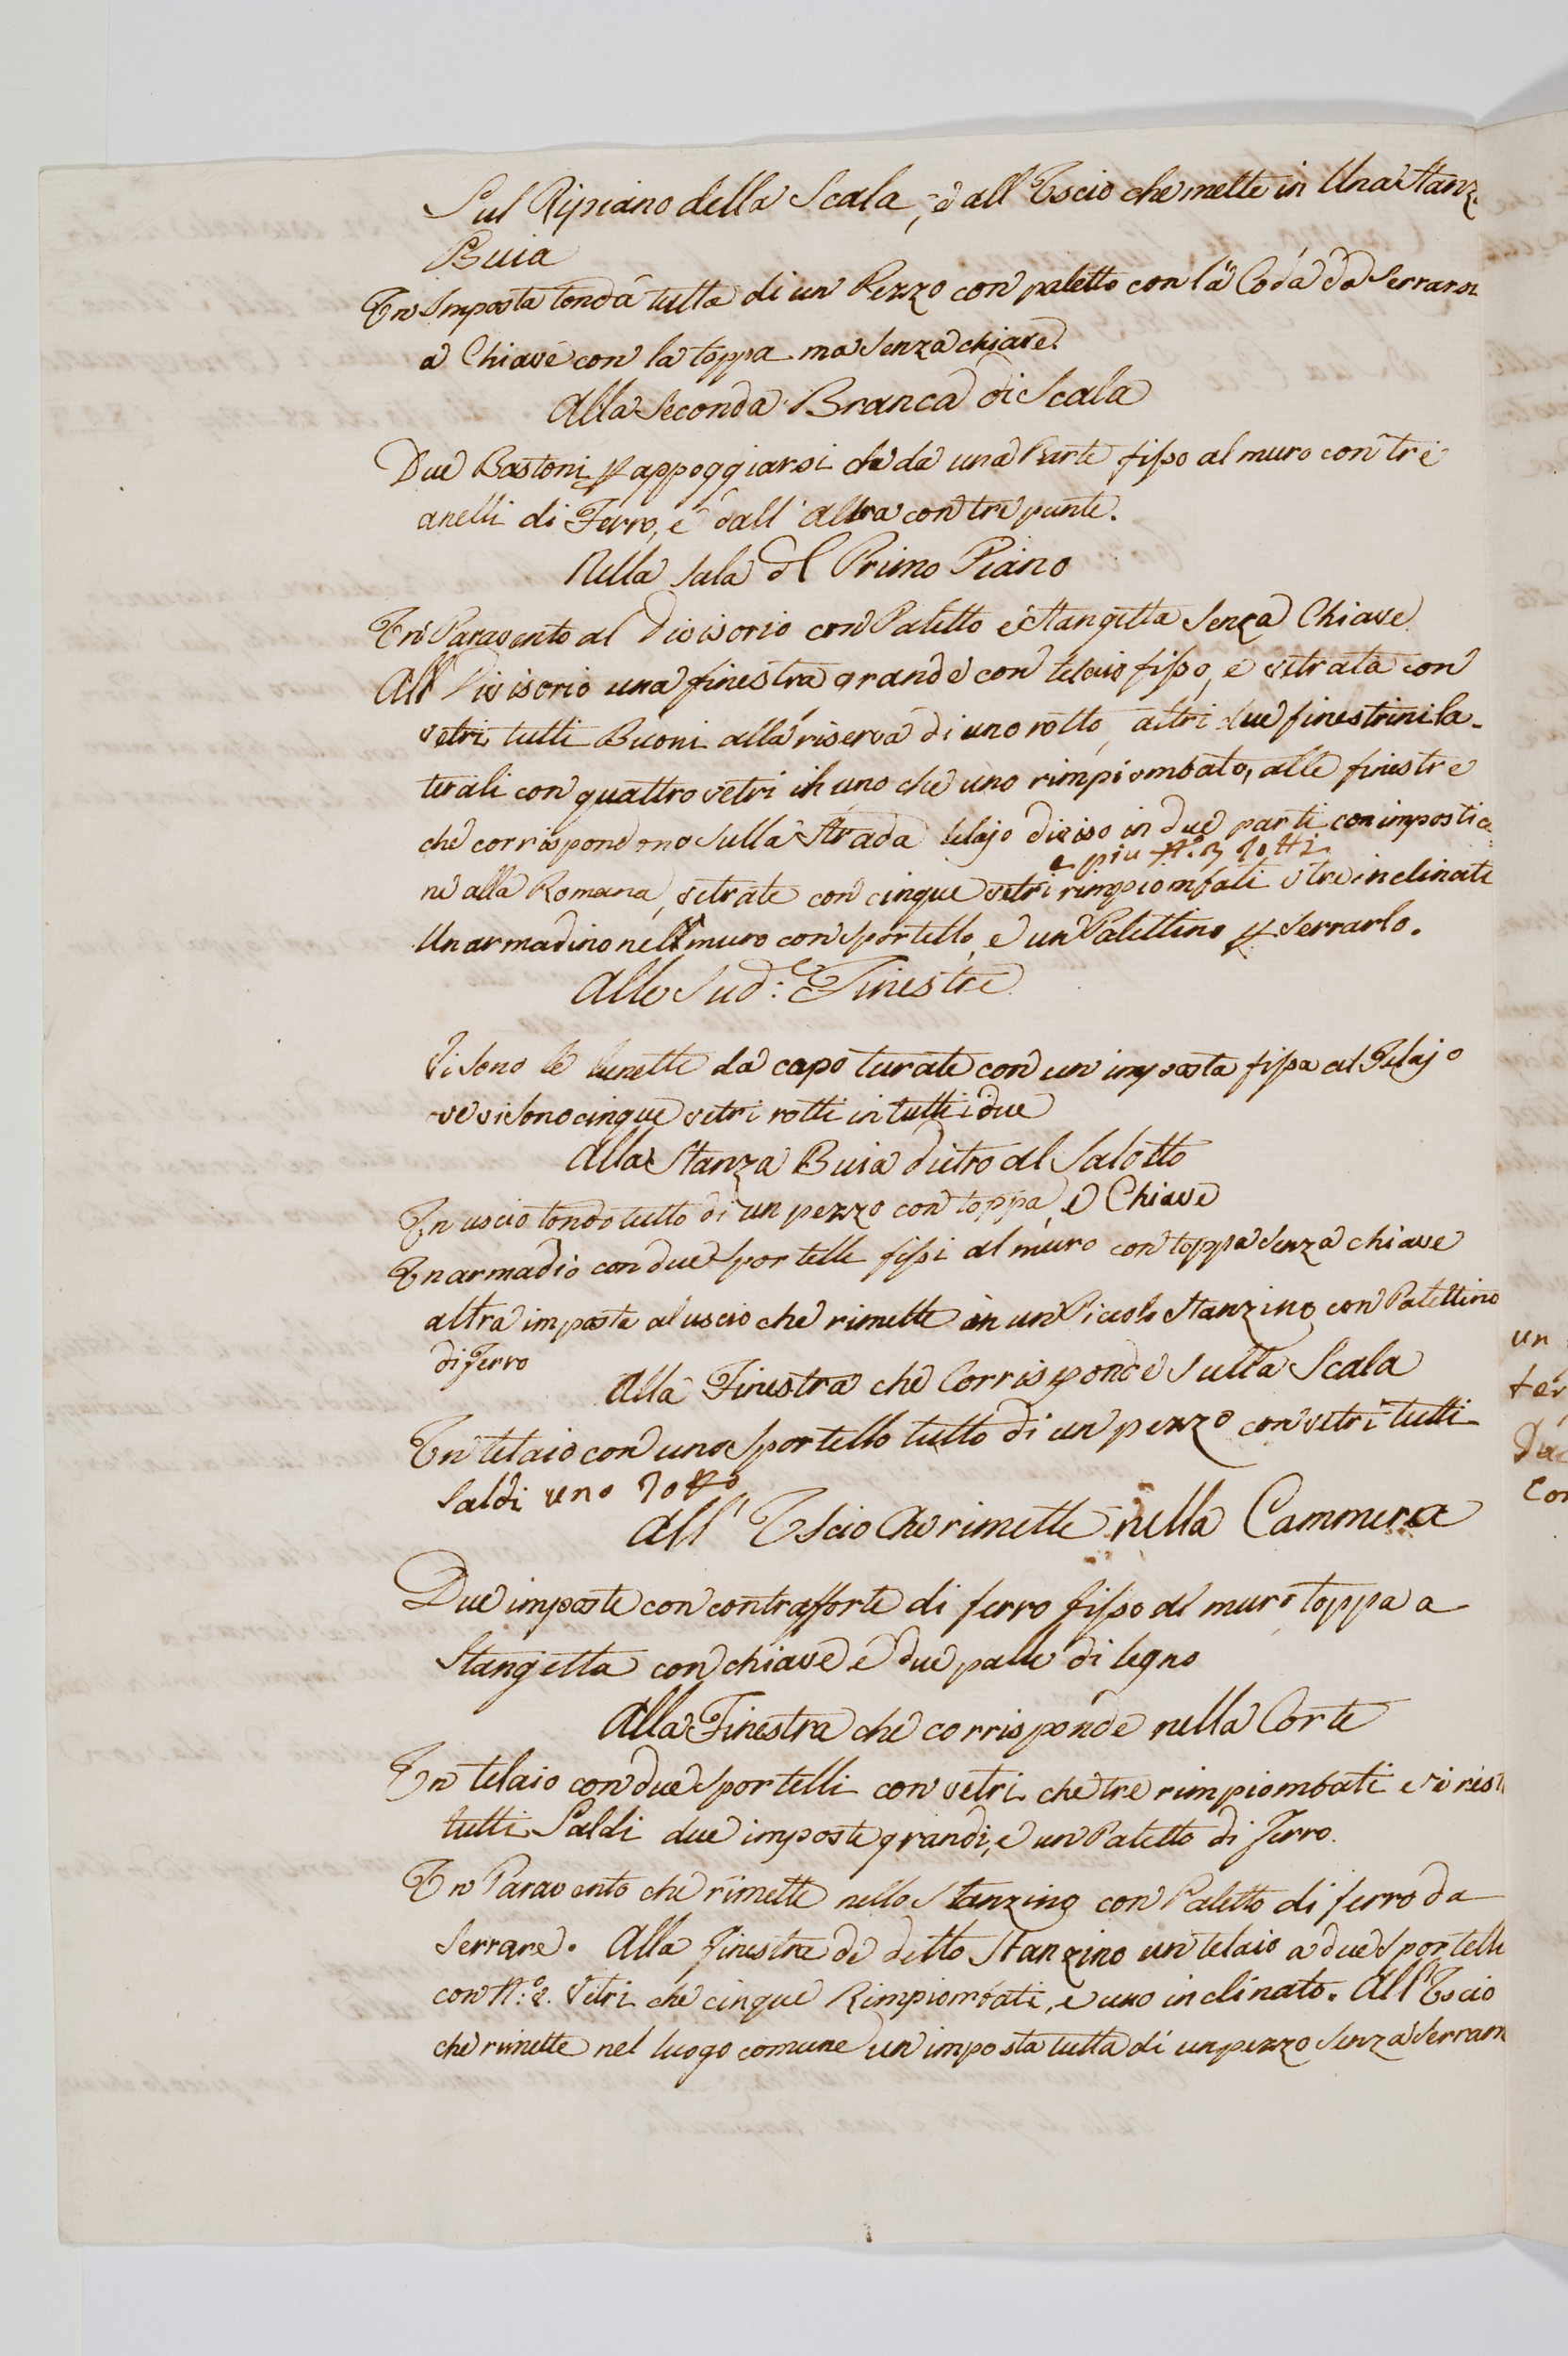 Sul Ripiano della Scala, e all'Uscio che mette in Una Stanz
Buia
Un Imposta tonda tutta di un Pezzo con paletto con la Coda da Serrarsi
a Chiave con la toppa ma Senza chiave.
Alla Seconda Branca di Scala
Due Bastoni p appoggiarsi che da una Parte fisso al muro con tre
anelli di Ferro, e dall'Altra con tre punte.
Nella Sala del Primo Piano
Un Paravento al Divisorio con Paletto e Stangetta Senza Chiave
All Divisorio una finestra grande con telaio fisso, e vetrata con
vetri tutti Buoni alla riserva di uno rotto, altri due finestrini la-
terali con quattro vetri in uno che uno rimpiombato, alle finestre
che corrispondono Sulla Strada telajo diviso in due parti con impostic
e piu N.º 3 Rotti
ne alla Romana, vetrate con cinque vetri rimpiombati e tre inclinati
Un armadino nell muro con Sportello, e un Palettino p Serrarlo.
Alle Sud.e Finestre
Vi Sono le lunette da capo turate con un imposta fissa al Telajo
ve vi Sono cinque vetri rotti in tutti i due
Alla Stanza Buia dietro al Salotto
Un uscio tondo tutto di un pezzo con toppa, e Chiave
Un armadio con due Sportelli fissi al muro con toppa Senza chiave
altra imposta al uscio che rimette in un Piccolo Stanzino con Palettino
di Ferro
Alla Finestra che Corrisponde Sulla Scala
Un telaio con uno Sportello tutto di un pezzo con vetri tutti
Saldi uno Rotto
All' Uscio che rimette nella Cammera
Due imposte con contrafforte di ferro fisso al muro toppa a
Stangetta con chiave e due palle di legno
Alla Finestra che corrisponde nella Corte
Un telaio con due Sportelli con vetri che tre rimpiombati e i rest
tutti Saldi due imposte grandi, e un Paletto di Ferro.
Un Paravento che rimette nello Stanzino con Paletto di ferro da
Serrare. Alla Finestra de detto Stanzino un telaio a due Sportelli
con N.º 8. Vetri che cinque Rimpiombati, e uno inclinato. All'Uscio
che rimette nel luogo comune un imposta tutta di un pezzo Senza Serram
un
ter
Due
Con